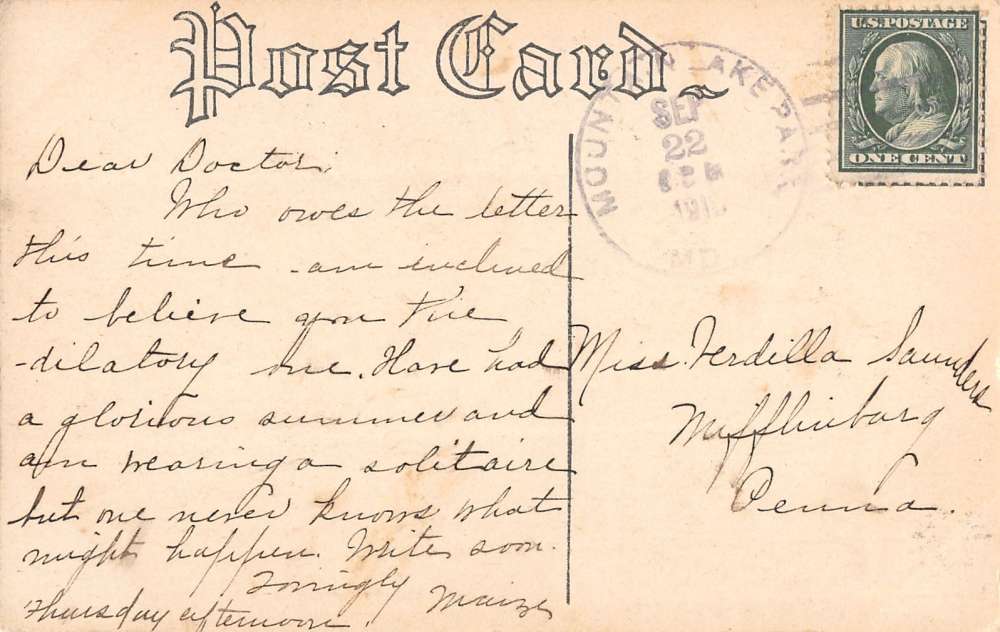 Post Card
U.S. POSTAGE
ONE CENT
MOUNTAIN LAKE PARK
SEP
22
MD
Dear Doctor;
Who owes the letter
this time - am inclined
to believe you the
dilatory one. Have had
a glorious summer and
am wearing a solitaire
but one never knows what
might happen. Write soon.
Lovingly
Thursday afternoon.
Miss. Verdilla Saunders
Mifflinburg
Penna.